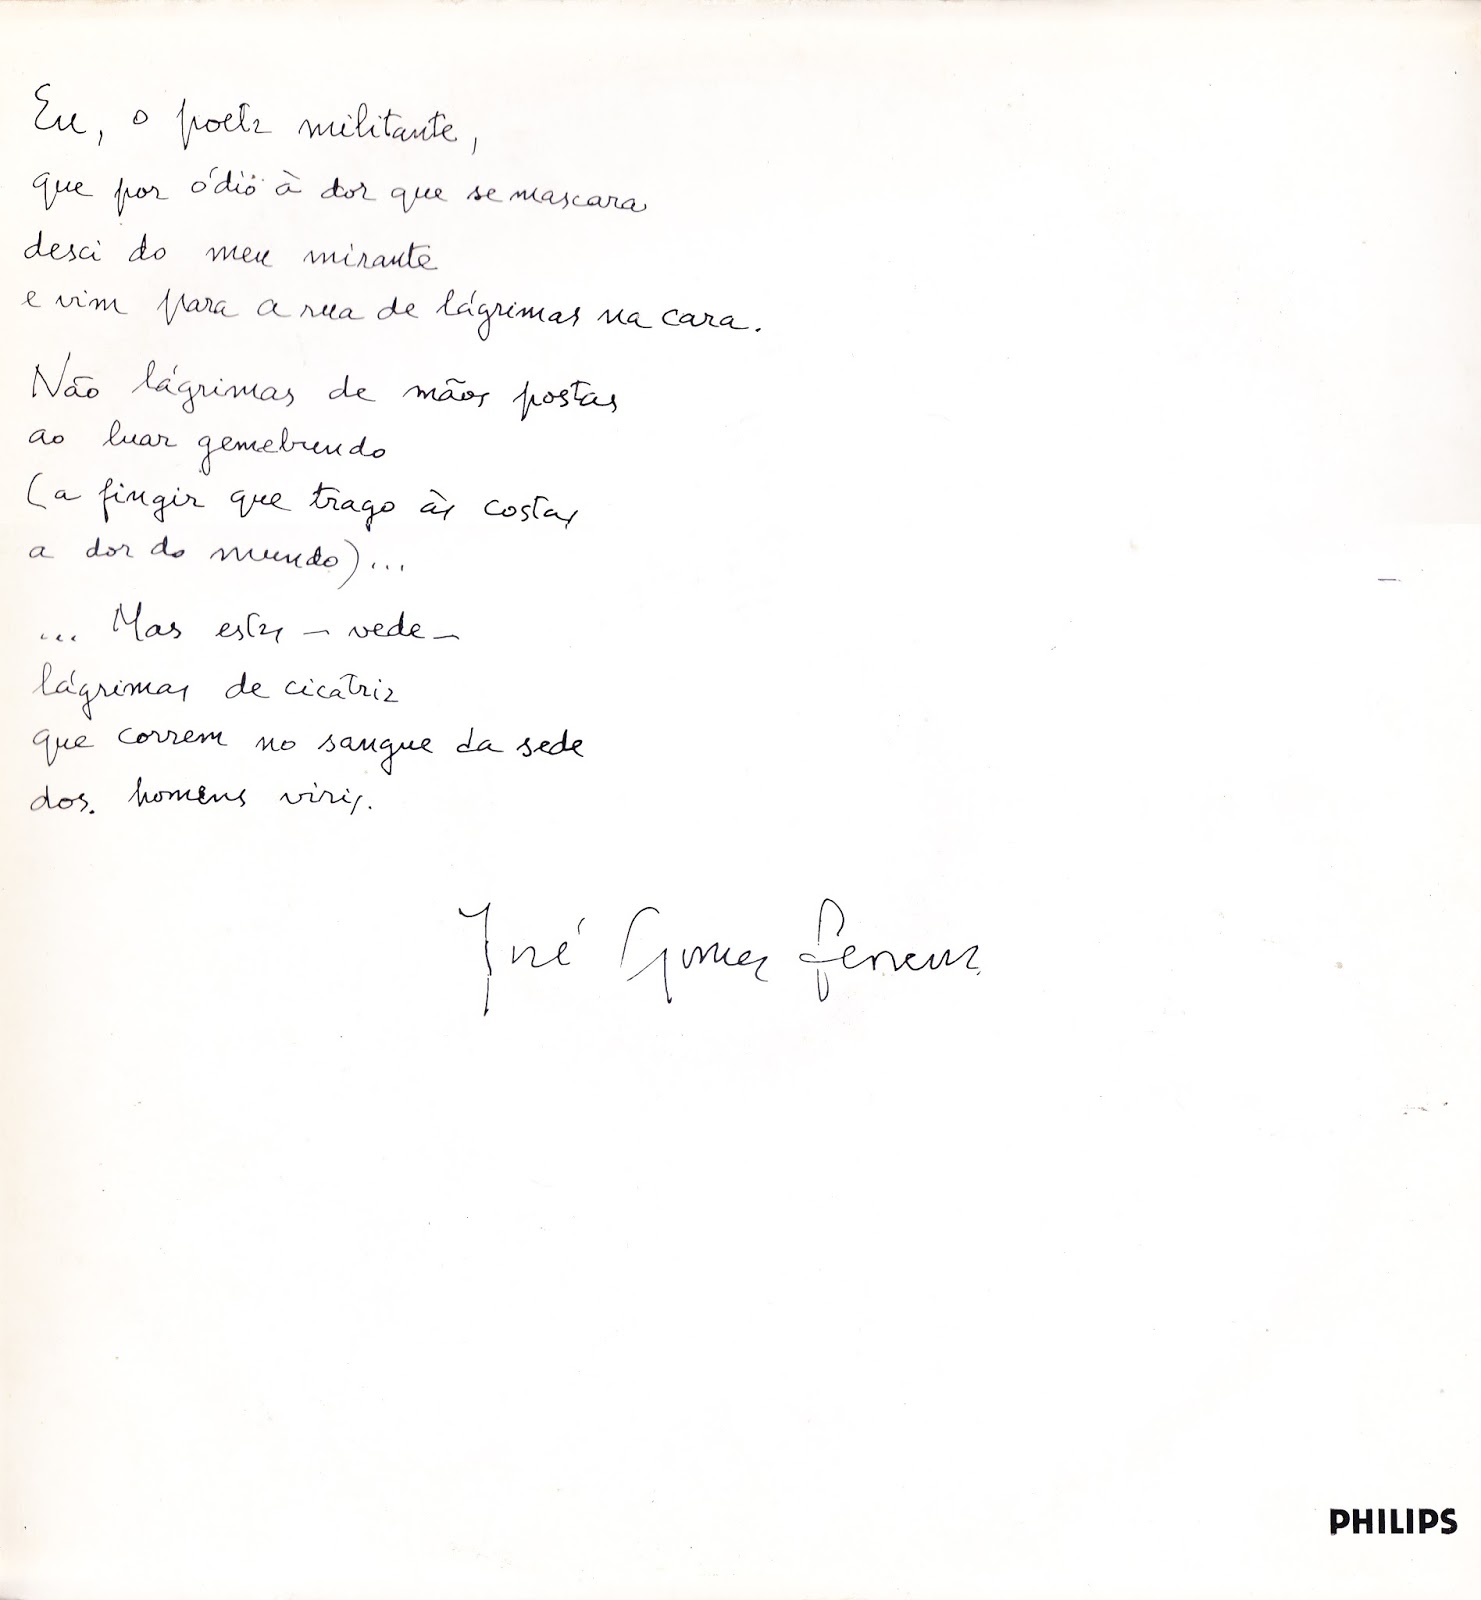 Eu, o poeta militante,
que por ódio à dor que se mascara
desci do meu mirante
e vim para a rua de lágrimas na cara.
Não lágrimas de mãos postas
ao luar gemebundo
(a fingir que trago às costas
a dor do mundo)...
... Mas estas – vede –
lágrimas de cicatriz
que correm no sangue da sede
dos homens viris.
José Gomes Ferreira
PHILIPS